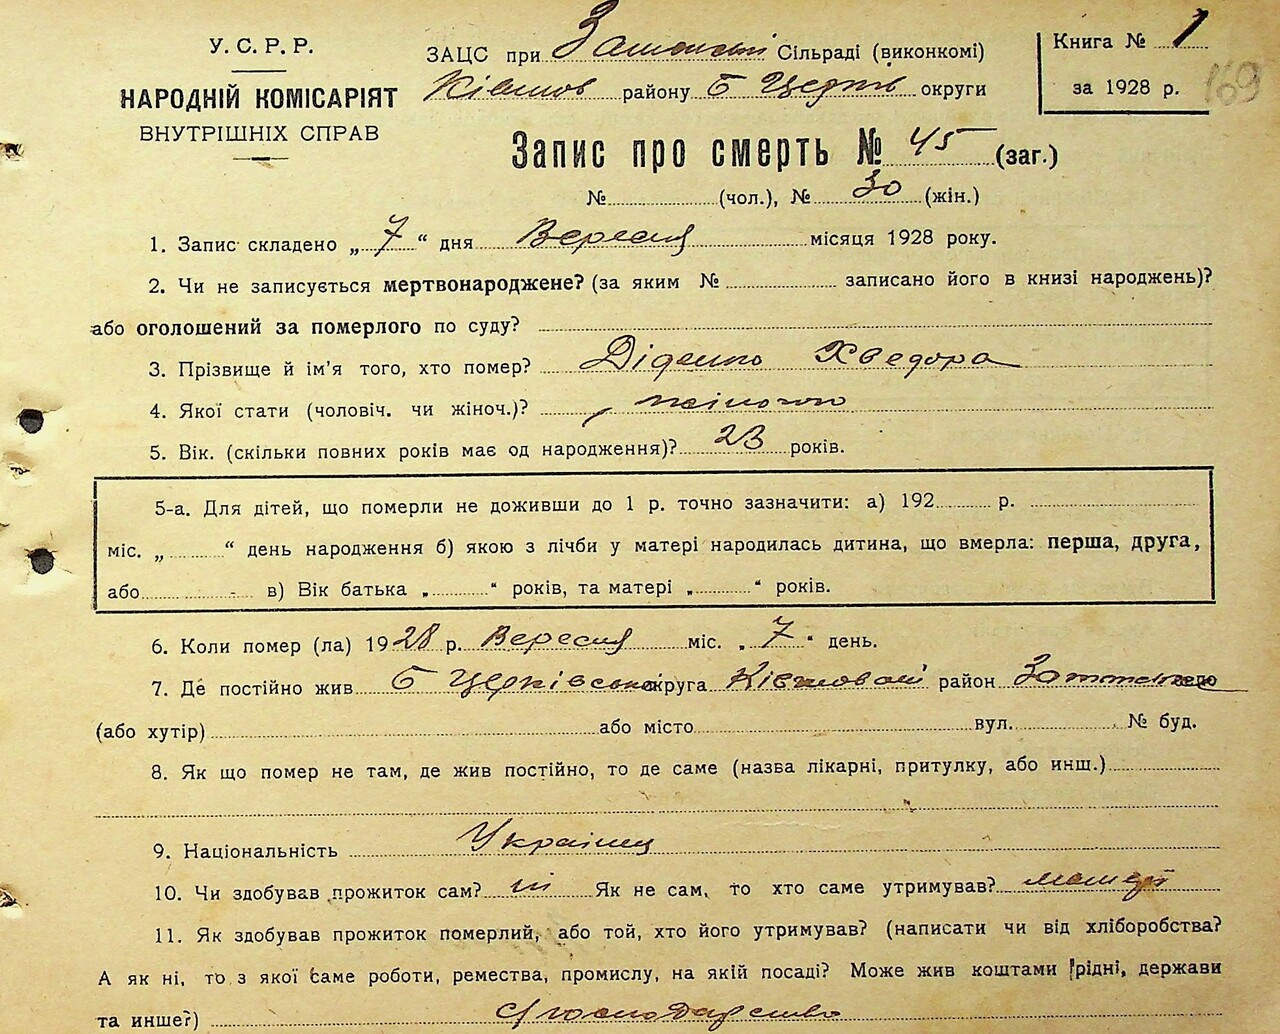 У. С. Р. Р.
НАРОДНІЙ КОМІСАРІЯТ
ВНУТРІШНІХ СПРАВ
ЗАЦС при Сільраді (виконкомі)
району Б Церків округи
Книга № 1
за 1928 р. 169
Запис про смерть № 45 (заг.)
№ (чол.), № 30 (жін.)
1. Запис складено „ 7 “ дня Вересня місяця 1928 року.
2. Чи не записується мертвонароджене? (за яким № записано його в книзі народжень)?
або оголошений за померлого по суду?
3. Прізвище й ім'я того, хто помер? Діденко Хведора
4. Якої стати (чоловіч. чи жіноч.)? жіночої
5. Вік. (скільки повних років має од народження)? 23 років.
5-а. Для дітей, що померли не доживши до 1 р. точно зазначити: а) 192 р.
міс. „ “ день народження б) якою з лічби у матері народилась дитина, що вмерла: перша, друга,
або в) Вік батька „ “ років, та матері „ “ років.
6. Коли помер (ла) 1928 р. Вересня міс. „ 7 “ день.
7. Де постійно жив Б Церківська округа район село
(або хутір) або місто вул. № буд.
8. Як що помер не там, де жив постійно, то де саме (назва лікарні, притулку, або инш.)
9. Національність Українц
10. Чи здобував прожиток сам? ні Як не сам, то хто саме утримував?
11. Як здобував прожиток померлий, або той, хто його утримував? (написати чи від хліборобства?
А як ні, то з якої саме роботи, ремества, промислу, на якій посаді? Може жив коштами рідні, держави
та инше?) господарство